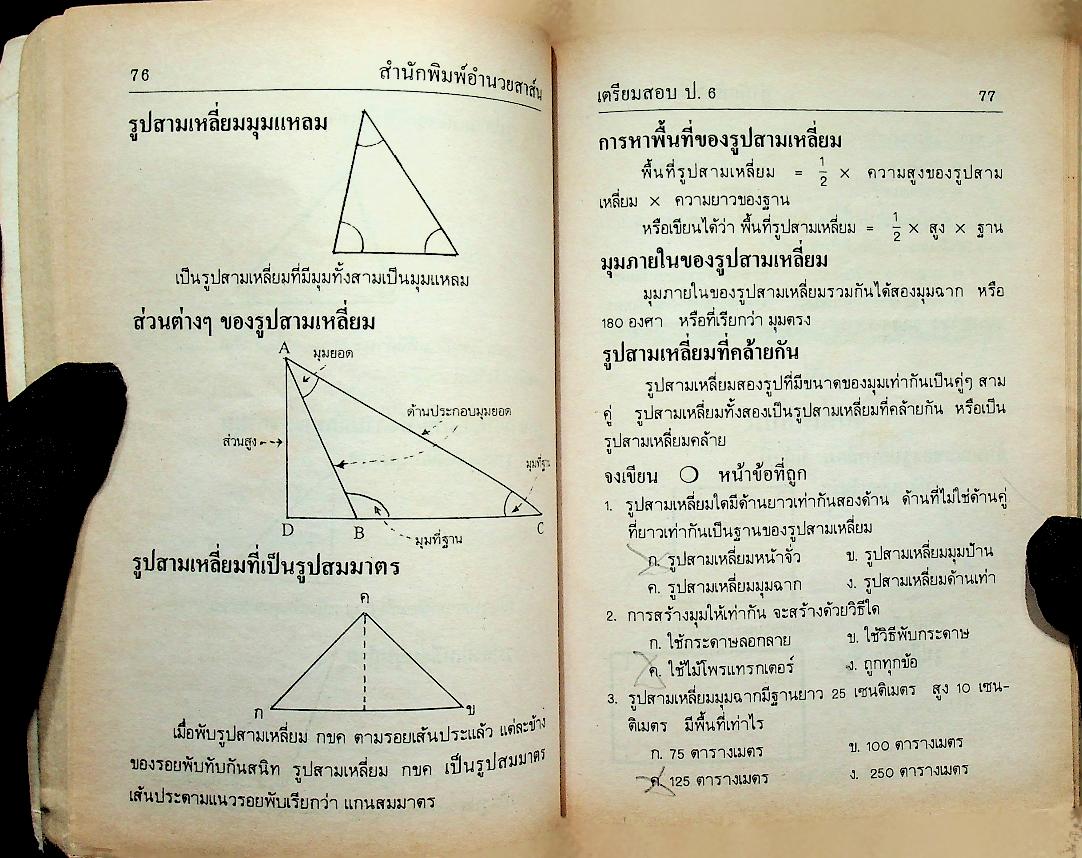 76
สำนักพิมพ์อำนวยสาส์น
รูปสามเหลี่ยมมุมแหลม
เป็นรูปสามเหลี่ยมที่มีมุมทั้งสามเป็นมุมแหลม
ส่วนต่างๆ ของรูปสามเหลี่ยม
A
มุมยอด
ด้านประกอบมุมยอด
ส่วนสูง
มุมที่ฐาน
D
B
C
มุมที่ฐาน
รูปสามเหลี่ยมที่เป็นรูปสมมาตร
ค
ก
ข
เมื่อพับรูปสามเหลี่ยม กขค ตามรอยเส้นประแล้ว แต่ละข้าง
ของรอยพับทับกันสนิท รูปสามเหลี่ยม กขค เป็นรูปสมมาตร
เส้นประตามแนวรอยพับเรียกว่า แกนสมมาตร
เตรียมสอบ ป. 6
77
การหาพื้นที่ของรูปสามเหลี่ยม
พื้นที่รูปสามเหลี่ยม = 1/2 × ความสูงของรูปสาม
เหลี่ยม × ความยาวของฐาน
หรือเขียนได้ว่า พื้นที่รูปสามเหลี่ยม = 1/2 × สูง × ฐาน
มุมภายในของรูปสามเหลี่ยม
มุมภายในของรูปสามเหลี่ยมรวมกันได้สองมุมฉาก หรือ
180 องศา หรือที่เรียกว่า มุมตรง
รูปสามเหลี่ยมที่คล้ายกัน
รูปสามเหลี่ยมสองรูปที่มีขนาดของมุมเท่ากันเป็นคู่ๆ สาม
คู่ รูปสามเหลี่ยมทั้งสองเป็นรูปสามเหลี่ยมที่คล้ายกัน หรือเป็น
รูปสามเหลี่ยมคล้าย
จงเขียน ◯ หน้าข้อที่ถูก
1. รูปสามเหลี่ยมใดมีด้านยาวเท่ากันสองด้าน ด้านที่ไม่ใช่ด้านคู่
ที่ยาวเท่ากันเป็นฐานของรูปสามเหลี่ยม
ก. รูปสามเหลี่ยมหน้าจั่ว ข. รูปสามเหลี่ยมมุมป้าน
ค. รูปสามเหลี่ยมมุมฉาก ง. รูปสามเหลี่ยมด้านเท่า
2. การสร้างมุมให้เท่ากัน จะสร้างด้วยวิธีใด
ก. ใช้กระดาษลอกลาย ข. ใช้วิธีพับกระดาษ
ค. ใช้ไม้โพรแทรกเตอร์ ง. ถูกทุกข้อ
3. รูปสามเหลี่ยมมุมฉากมีฐานยาว 25 เซนติเมตร สูง 10 เซน-
ติเมตร มีพื้นที่เท่าไร
ก. 75 ตารางเมตร ข. 100 ตารางเมตร
ค. 125 ตารางเมตร ง. 250 ตารางเมตร